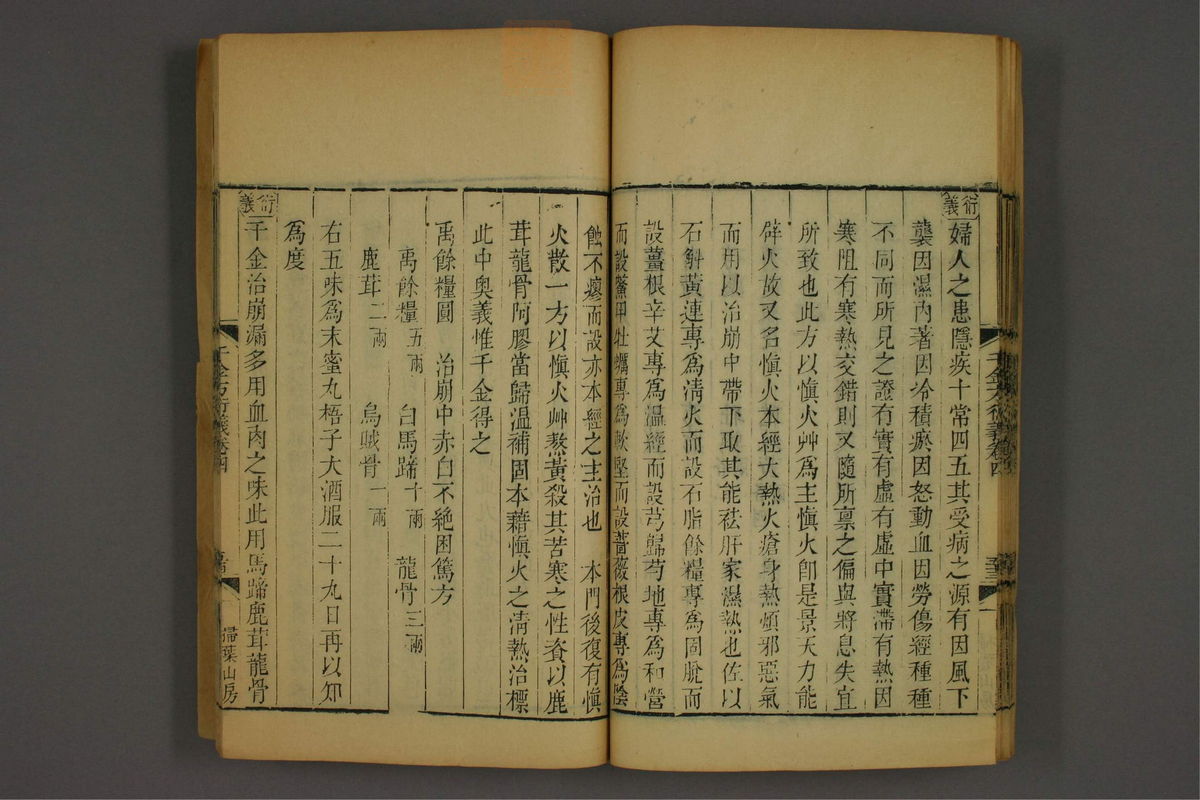 衍義
婦人之患隱疾十常四五其受病之源有因風下
襲因濕內著因冷積瘀因怒動血因勞傷經種種
不同而所見之證有實有虛有虛中實滯有熱因
寒阻有寒熱交錯則又隨所稟之偏與將息失宜
所致也此方以愼火艸爲主愼火卽是景天力能
辟火故又名愼火本經大熱火瘡身熱煩邪惡氣
而用以治崩中帶下取其能祛肝家濕熱也佐以
石斛黃連專爲淸火而設石脂餘糧專爲固脫而
設薑根辛艾專爲溫經而設芎歸芍地專爲和營
而設鱉甲牡蠣專爲軟堅而設薔薇根皮專爲陰
蝕不瘳而設亦本經之主治也 本門後復有愼
火散一方以愼火艸熬黃殺其苦寒之性資以鹿
茸龍骨阿膠當歸溫補固本藉愼火之淸熱治標
此中奧義惟千金得之
禹餘糧圓 治崩中赤白不絕困篤方
禹餘糧五兩 白馬蹄十兩 龍骨三兩
鹿茸二兩 烏賊骨一兩
右五味爲末蜜丸梧子大酒服二十丸日再以知
爲度
衍義
千金治崩漏多用血肉之味此用馬蹄鹿茸龍骨
千金方衍義卷四
掃葉山房